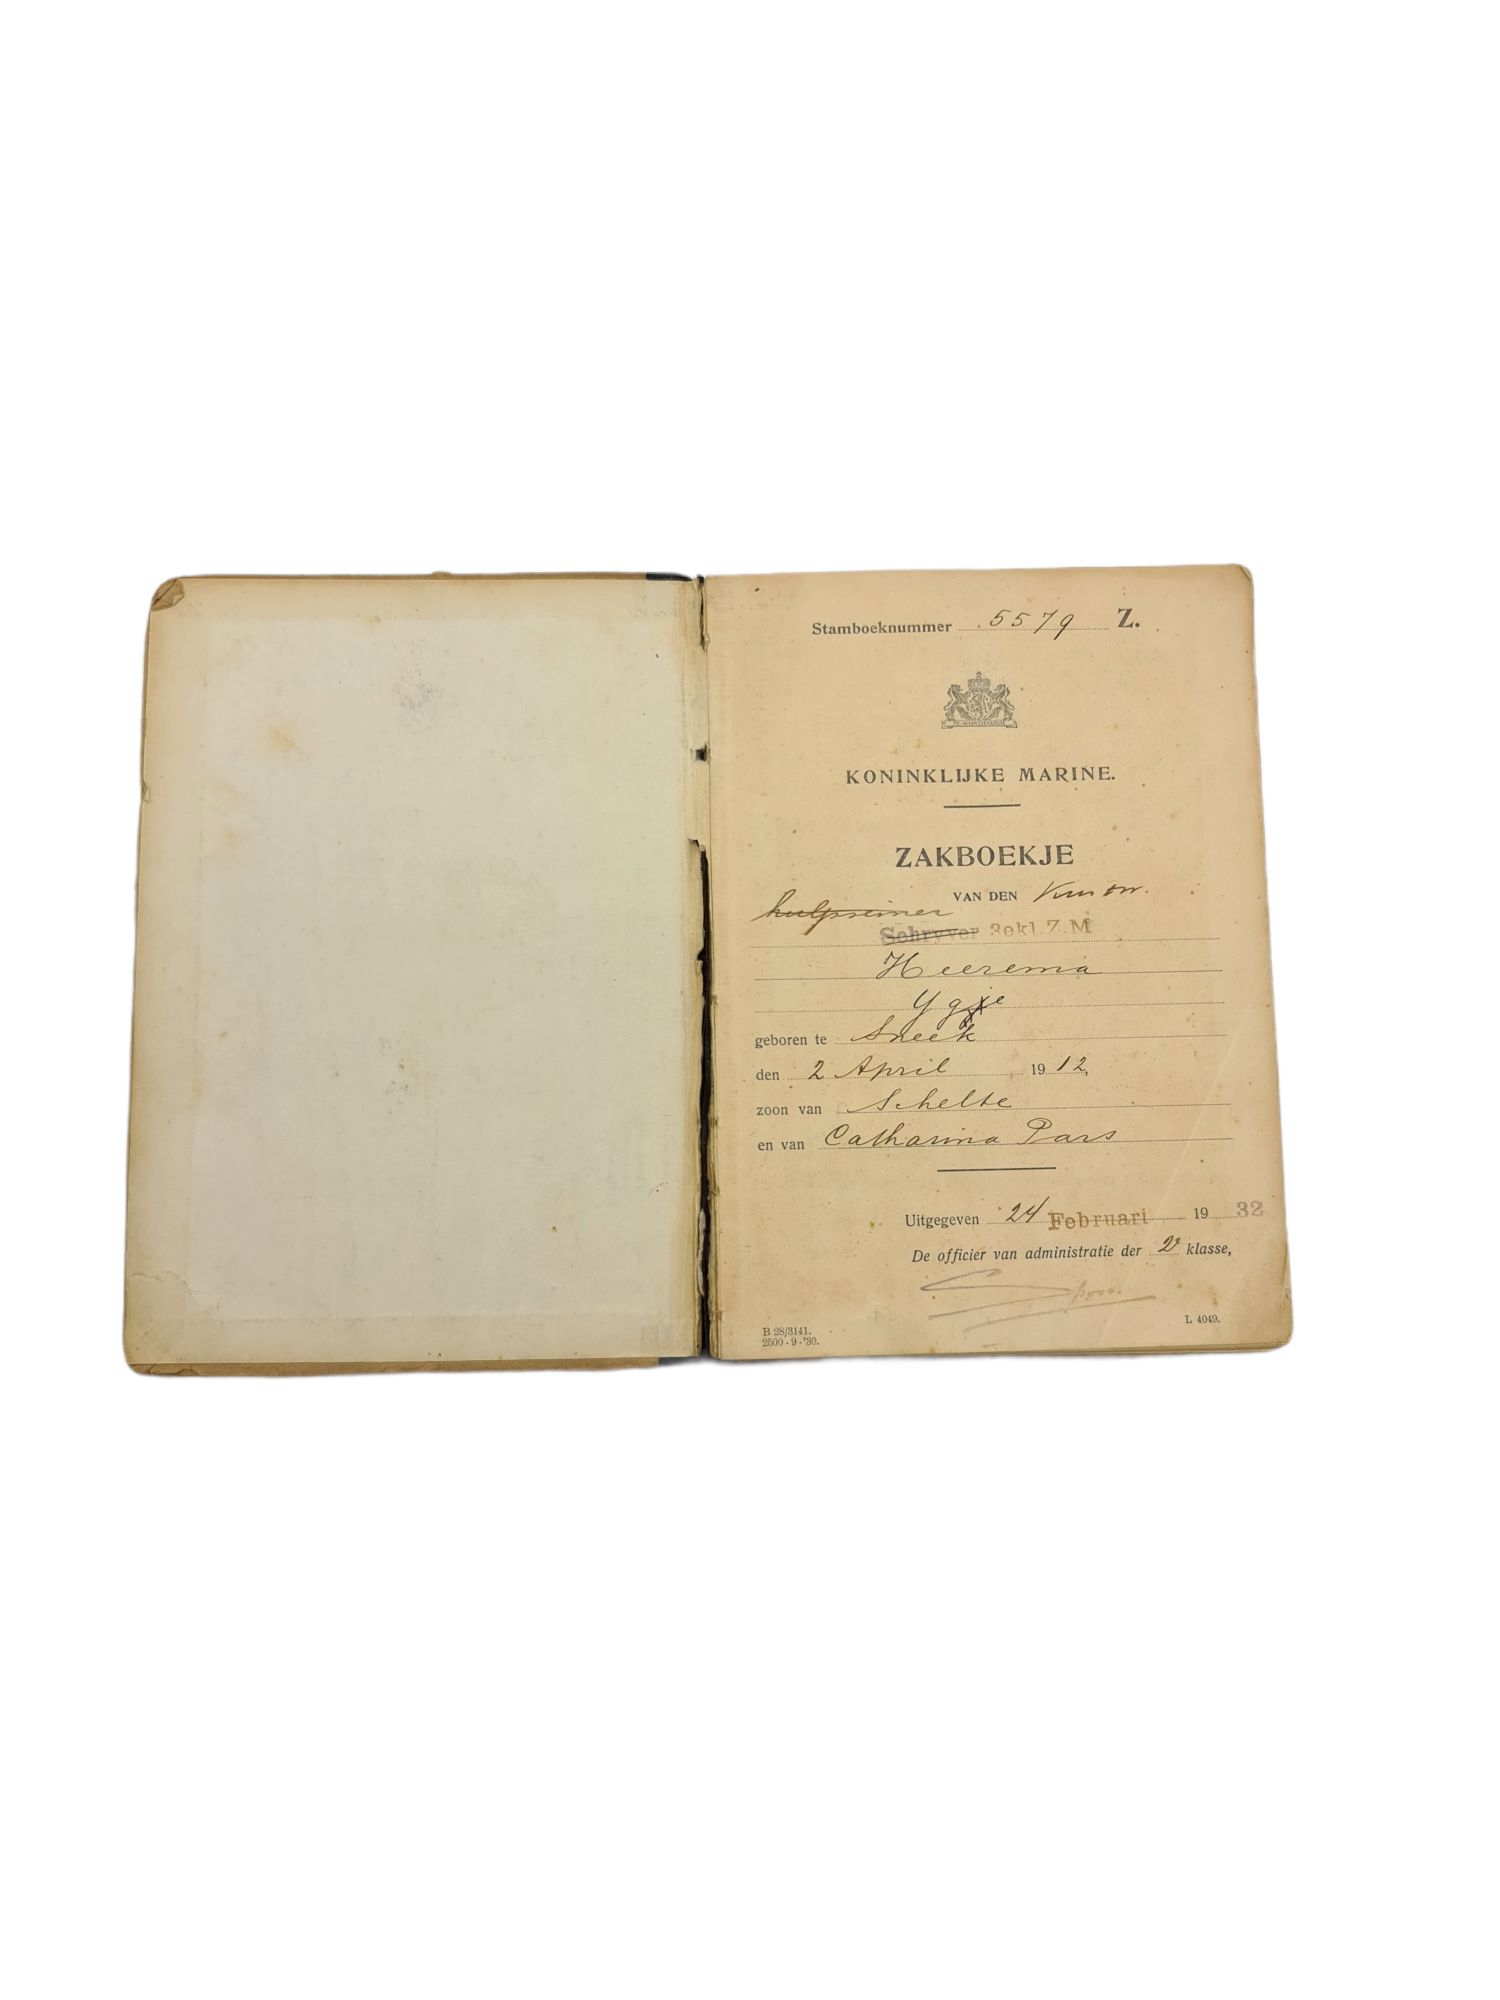 Stamboeknummer 5579 Z.
JE MAINTIENDRAI
KONINKLIJKE MARINE.
ZAKBOEKJE
VAN DEN
hulpseiner
Schryver 3ekl.Z.M
Heerema
Ygje
geboren te Sneek
den 2 April 1912,
zoon van Schelte
en van Catharina Pars
Uitgegeven 24 Februari 1932
De officier van administratie der 2e klasse,
B 28/3141.
2500-9-'30.
L 4049.